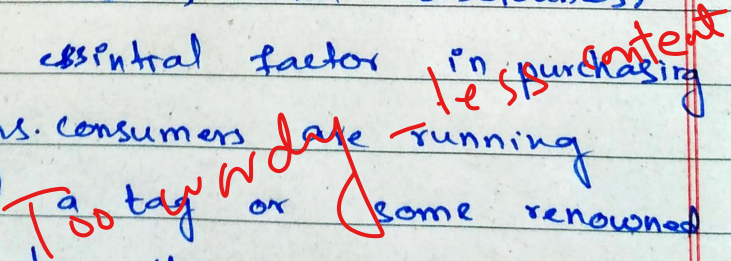 essintial factor in purchasing
s. consumers are running
a tag or some renowned
Too wordy - less content